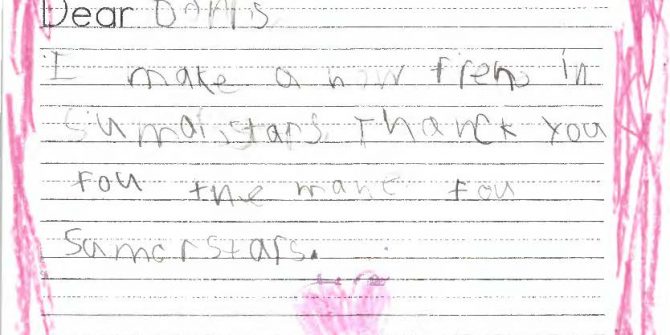 Dear Donors
I make a now frend in
Sumarstars Thanck you
fou the mane fou
Samerstars.